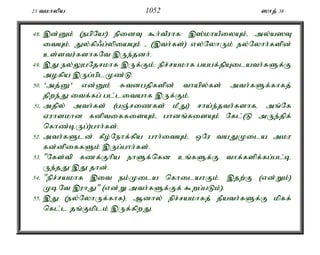 23 வமாலிய 1052 ஸாத் 38
48. இன்னும் (நபியே!) நினைவு கூர்வீராக: இஸ்மாயீலையும், அல்யஸவு
வையும், துல்கிஃப்லியையும் - (இவர்கள்) எல்லோரும் நல்லோர்களின்
உள்ளவர்களாகவே இருந்தனர்.
49. இது நல்லுபதேசமாக இருக்கும்; நிச்சயமாக பயபக்தியுடையவர்களுக்கு
அழகிய இருப்பிடமுண்டு.
50. 'அத்னு' என்னும் சுவனபதிகளின் வாயில்கள் அவர்களுக்காகத்
திறந்து வைக்கப் பட்டவையாக இருக்கும்.
51. அதில் அவர்கள் (பஞ்சணைகள் மீது) சாய்ந்தவர்களாக, அங்கே
ஏராளமான கனிவகைகளையும், பானங்களையும் கேட்(டு அருந்திக்
கொண்டிருப்)பார்கள்.
52. அவர்களுடன் கீழ்நோக்கிய பார்வையும், ஒரே வயதுமுடைய அமர
கன்னிகைகளும் இருப்பார்கள்.
53. "கேள்வி கணக்குரிய நாளுக்கென உங்களுக்கு வாக்களிக்கப்பட்டி
ருந்தது இது தான்.
54. "நிச்சயமாக இவை நம்முடைய கொடையாகும். இதற்கு (என்றும்)
முடிவே இராது" (என்று அவர்களுக்குக் கூறப்படும்).
55. இது (நல்லோருக்காக); ஆனால் நிச்சயமாகத் தீயவர்களுக்கு மிகக்
கெட்ட தங்குமிடம் இருக்கிறது.